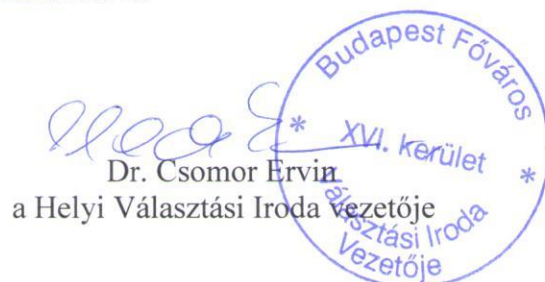 Dr. Csomor Ervin
a Helyi Választási Iroda vezetője
Budapest Főváros
* XVI. kerület *
Választási Iroda
Vezetője